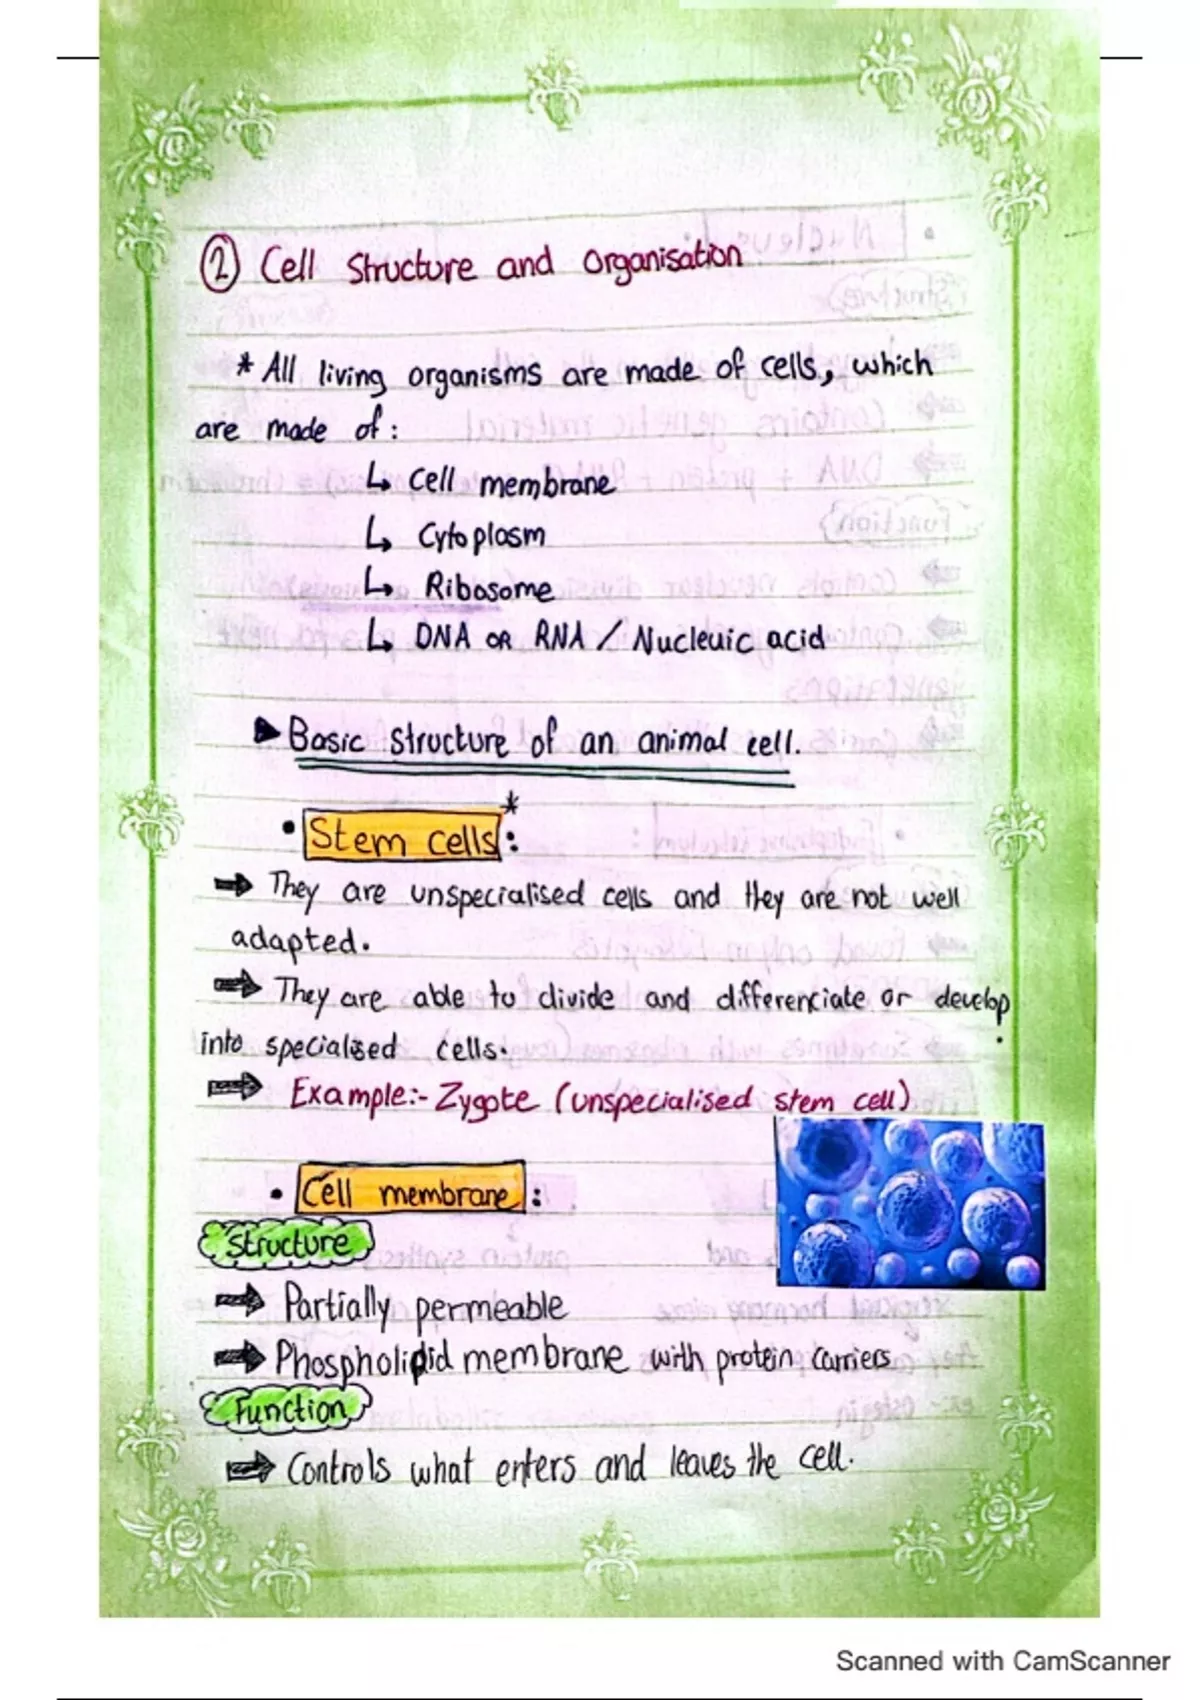 ② Cell Structure and Organisation
* All living organisms are made of cells, which
are made of:
↳ Cell membrane
↳ Cytoplasm
↳ Ribosome
↳ DNA OR RNA / Nucleuic acid
► Basic structure of an animal cell.
• Stem cells*:
⇒ They are unspecialised cells and they are not well
adapted.
⇒ They are able to divide and differenciate or develop
into specialised cells.
⇒ Example:- Zygote (unspecialised stem cell)
• Cell membrane:
Structure
⇒ Partially permeable
⇒ Phospholipid membrane with protein carriers
Function
⇒ Controls what enters and leaves the cell.
Scanned with CamScanner